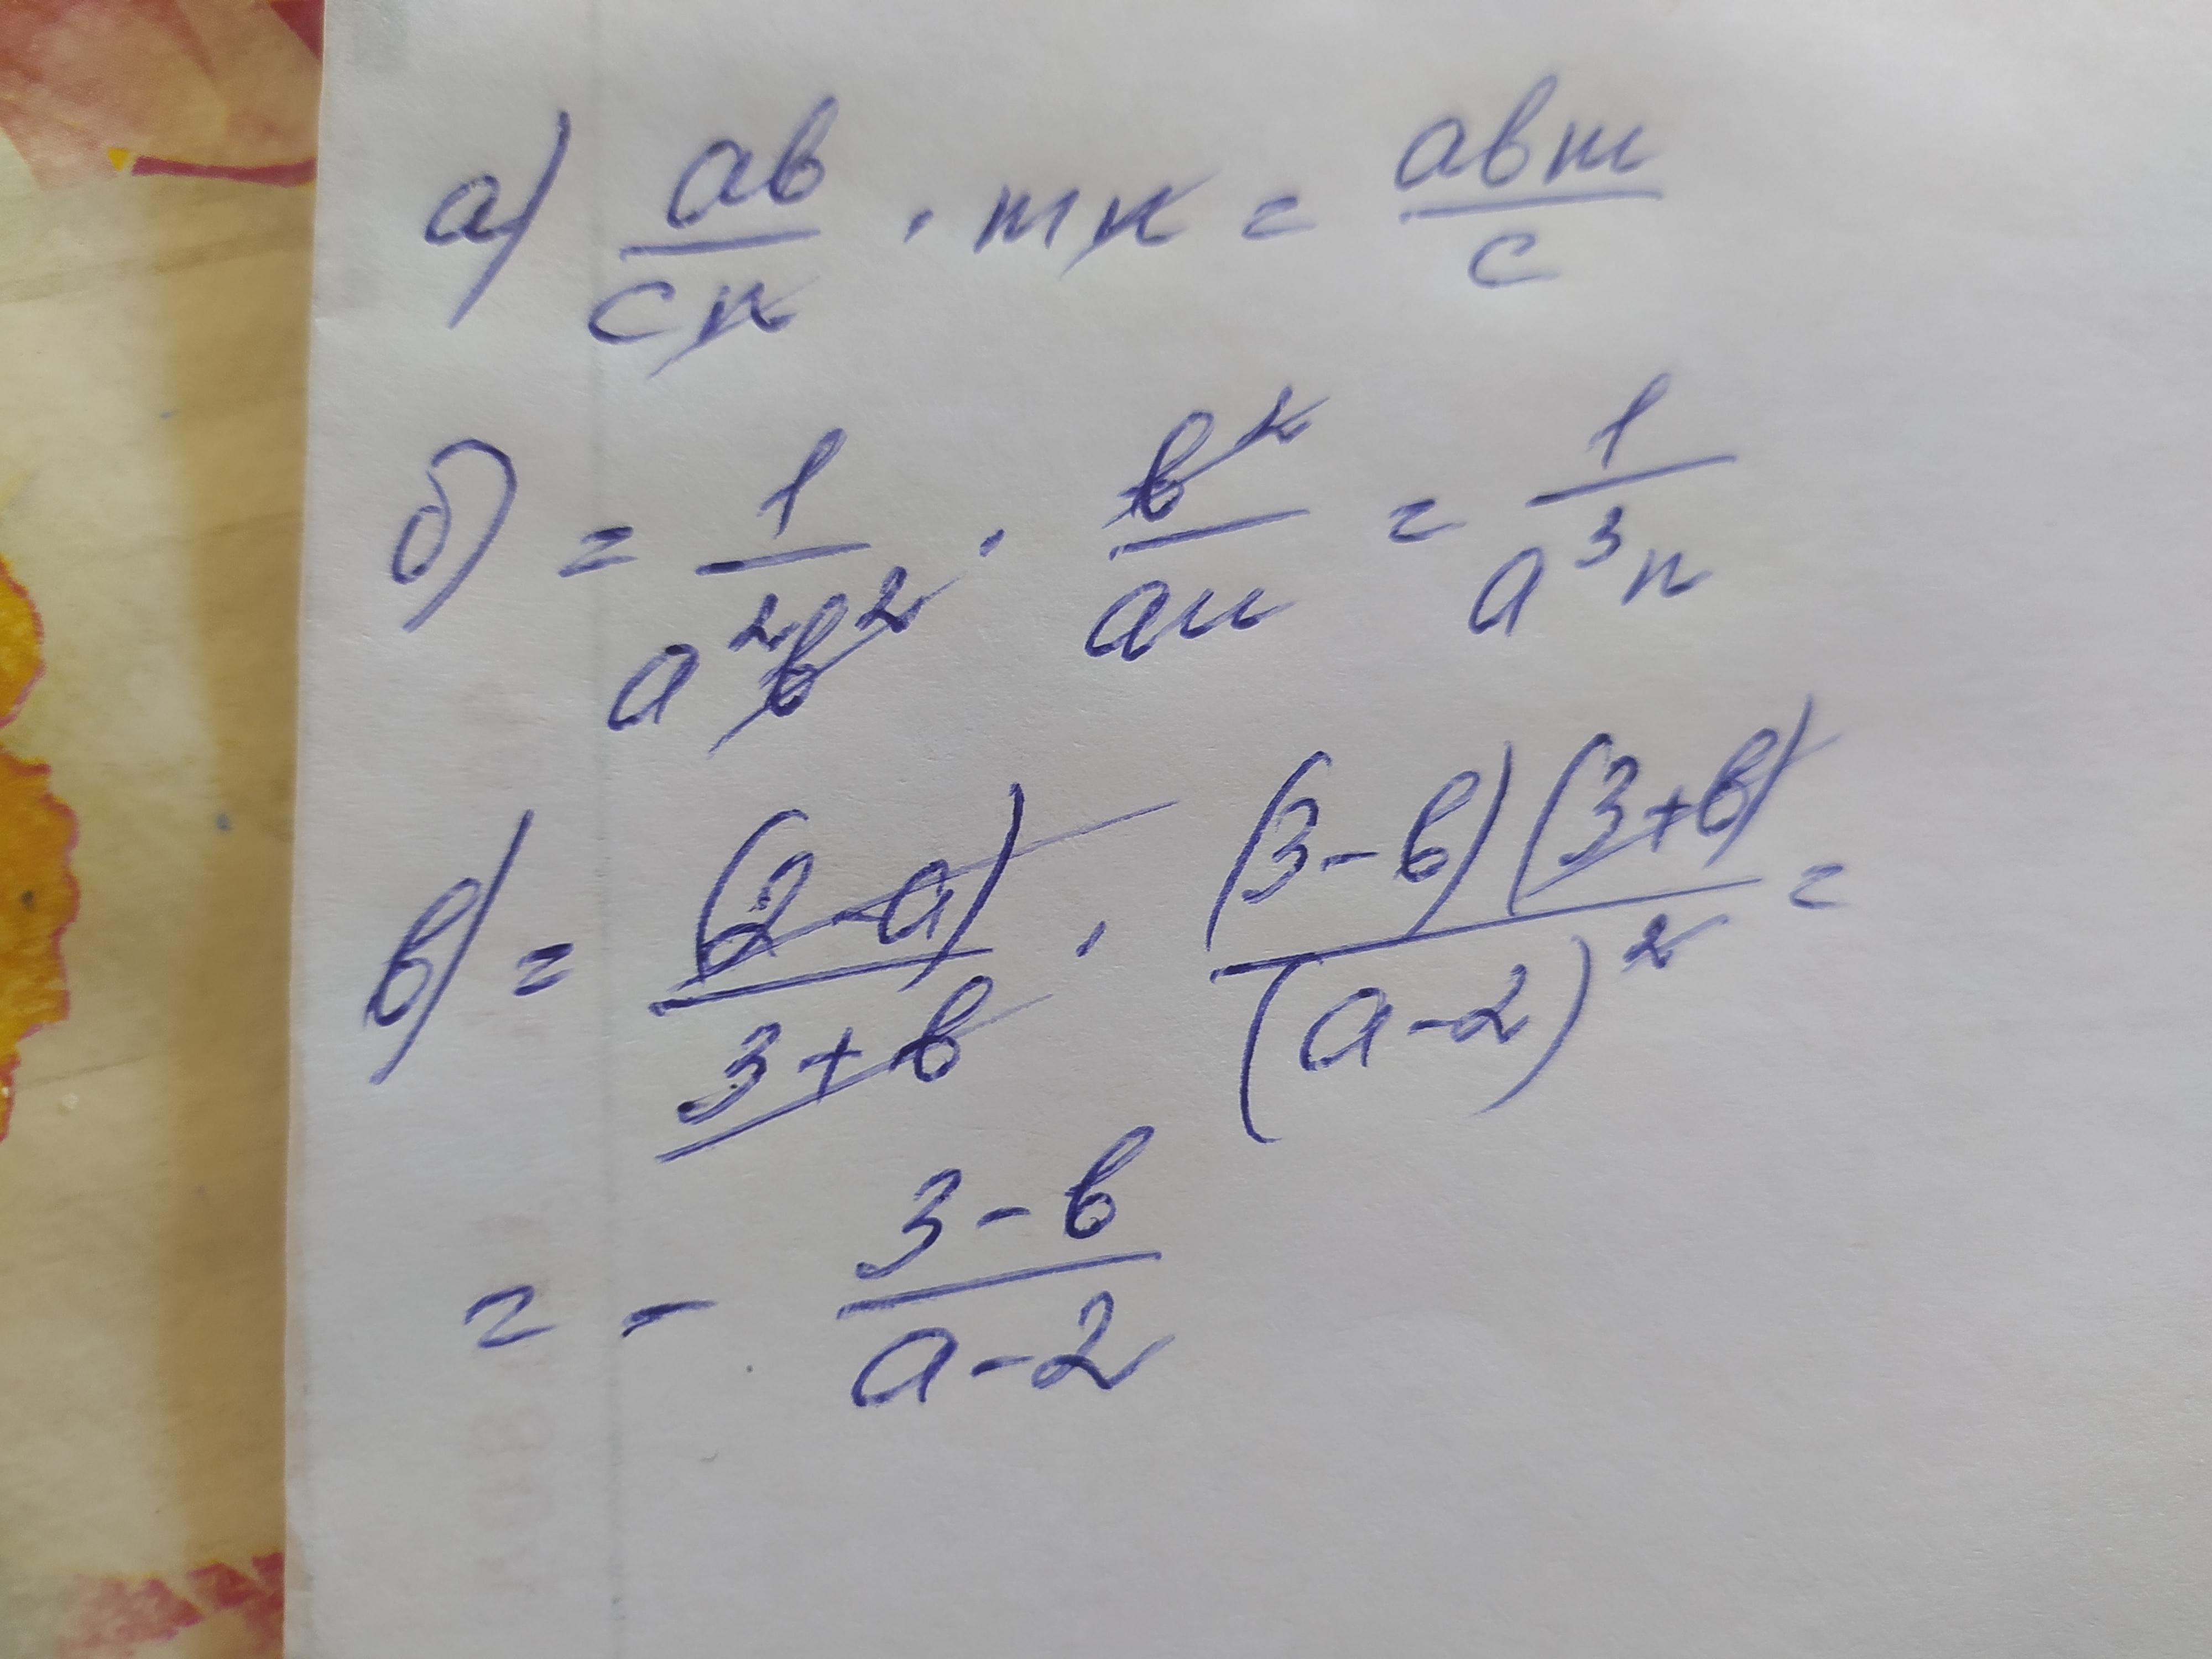 а) ab/cn · mn = abm/c
б) = 1/a²b² · b²/an = 1/a³n
в) = (2-a)/3+b · (3-b)(3+b)/(a-2)² =
= - 3-b/a-2